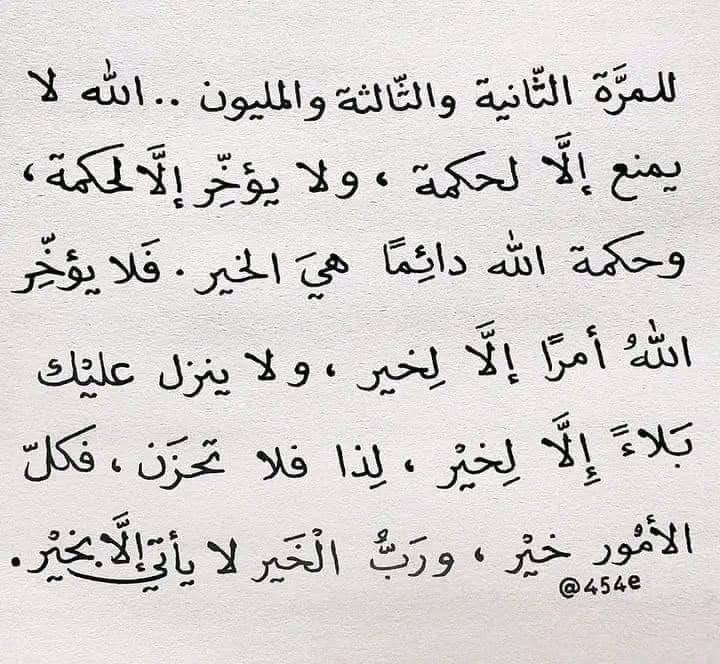 للمرَّة الثّانية والثّالثة والمليون .. الله لا
يمنع إلَّا لحكمة ، ولا يؤخِّر إلَّا لحكمة ،
وحكمة الله دائِمًا هيَ الخير . فَلا يؤخِّر
اللهُ أمرًا إلَّا لِخير ، ولا ينزل عليْك
بَلاءً إِلَّا لِخيْر ، لِذا فلا تحزَن ، فكلّ
الأمُور خيْر ، ورَبُّ الْخَير لا يأتي إلَّا بخيْر .
@454e